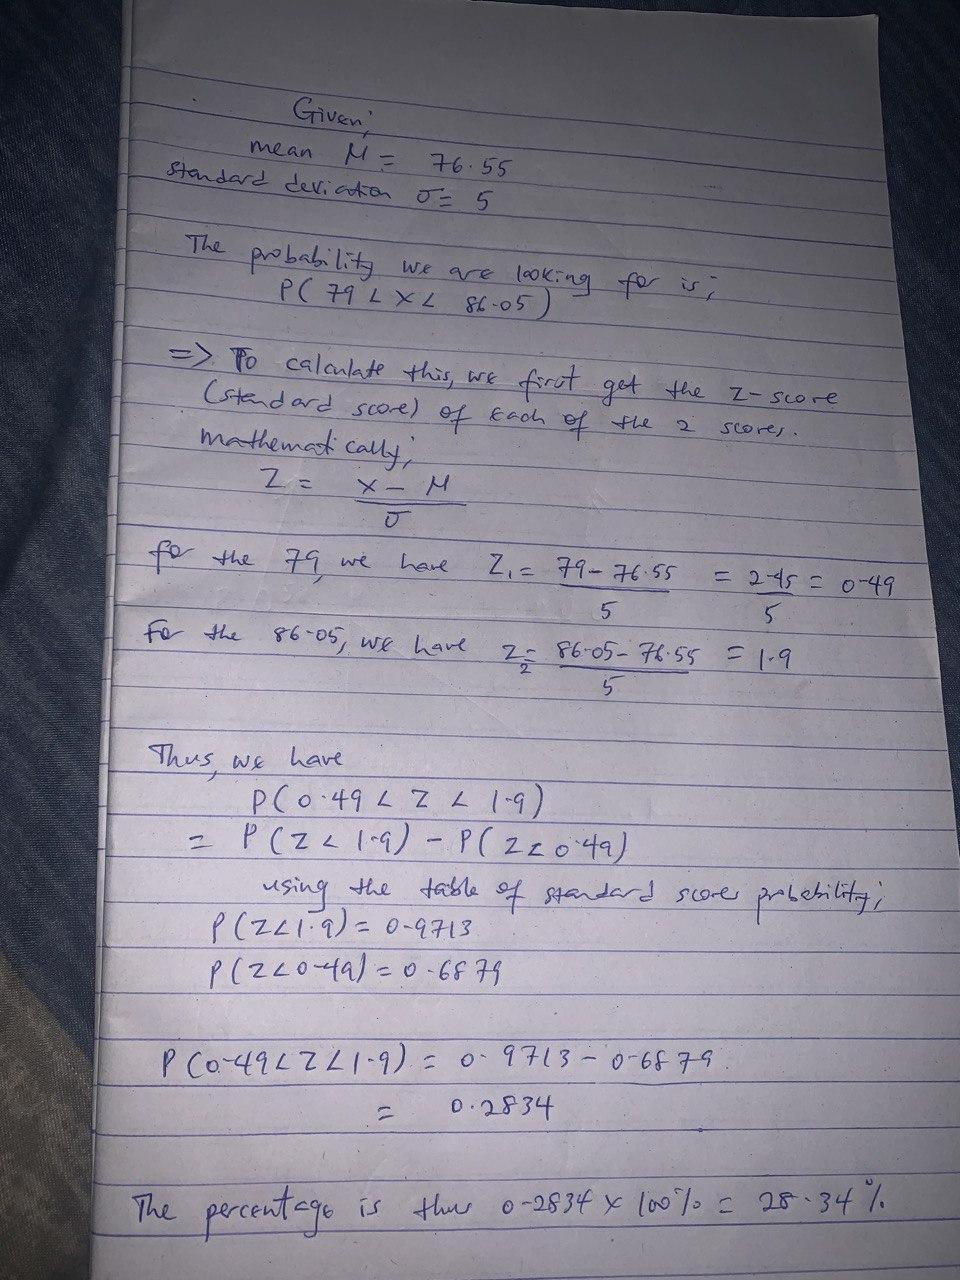 Given;
mean M = 76.55
standard deviation σ = 5
The probability we are looking for is;
P(79 < X < 86.05)
=> To calculate this, we first get the z-score
(standard score) of each of the 2 scores.
mathematically;
Z = X - M
σ
for the 79, we have Z₁ = 79 - 76.55 = 2.45 = 0.49
5 5
For the 86.05, we have Z₂ = 86.05 - 76.55 = 1.9
5
Thus, we have
P(0.49 < Z < 1.9)
= P(Z < 1.9) - P(Z < 0.49)
using the table of standard scores probability;
P(Z < 1.9) = 0.9713
P(Z < 0.49) = 0.6879
P(0.49 < Z < 1.9) = 0.9713 - 0.6879
= 0.2834
The percentage is thus 0.2834 × 100% = 28.34%